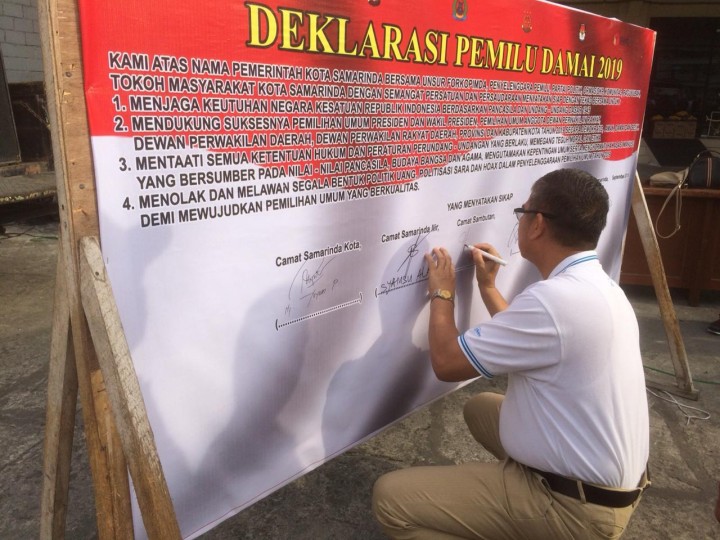 DEKLARASI PEMILU DAMAI 2019
KAMI ATAS NAMA PEMERINTAH KOTA SAMARINDA BERSAMA UNSUR FORKOPIMDA, PENYELENGGARA PEMILU, PARTAI POLITIK,
TOKOH MASYARAKAT KOTA SAMARINDA DENGAN SEMANGAT PERSATUAN DAN PERSAUDARAAN MENYATAKAN
1. MENJAGA KEUTUHAN NEGARA KESATUAN REPUBLIK INDONESIA BERDASARKAN PANCASILA DAN UNDANG
2. MENDUKUNG SUKSESNYA PEMILIHAN UMUM PRESIDEN DAN WAKIL PRESIDEN, PEMILIHAN UMUM ANGGOTA DEWAN
DEWAN PERWAKILAN DAERAH, DEWAN PERWAKILAN RAKYAT DAERAH, PROVINSI DAN KABUPATEN/KOTA TAHUN
3. MENTAATI SEMUA KETENTUAN HUKUM DAN PERATURAN PERUNDANG - UNDANGAN YANG BERLAKU, MEMEGANG TEGUH
YANG BERSUMBER PADA NILAI - NILAI PANCASILA, BUDAYA BANGSA DAN AGAMA, MENGUTAMAKAN KEPENTINGAN UMUM
4. MENOLAK DAN MELAWAN SEGALA BENTUK POLITIK UANG, POLITISASI SARA DAN HOAX DALAM PENYELENGGARAAN PEMILIHAN UMUM
DEMI MEWUJUDKAN PEMILIHAN UMUM YANG BERKUALITAS.
YANG MENYATAKAN SIKAP
Camat Samarinda Kota,
Camat Samarinda Ilir,
Camat Sambutan,